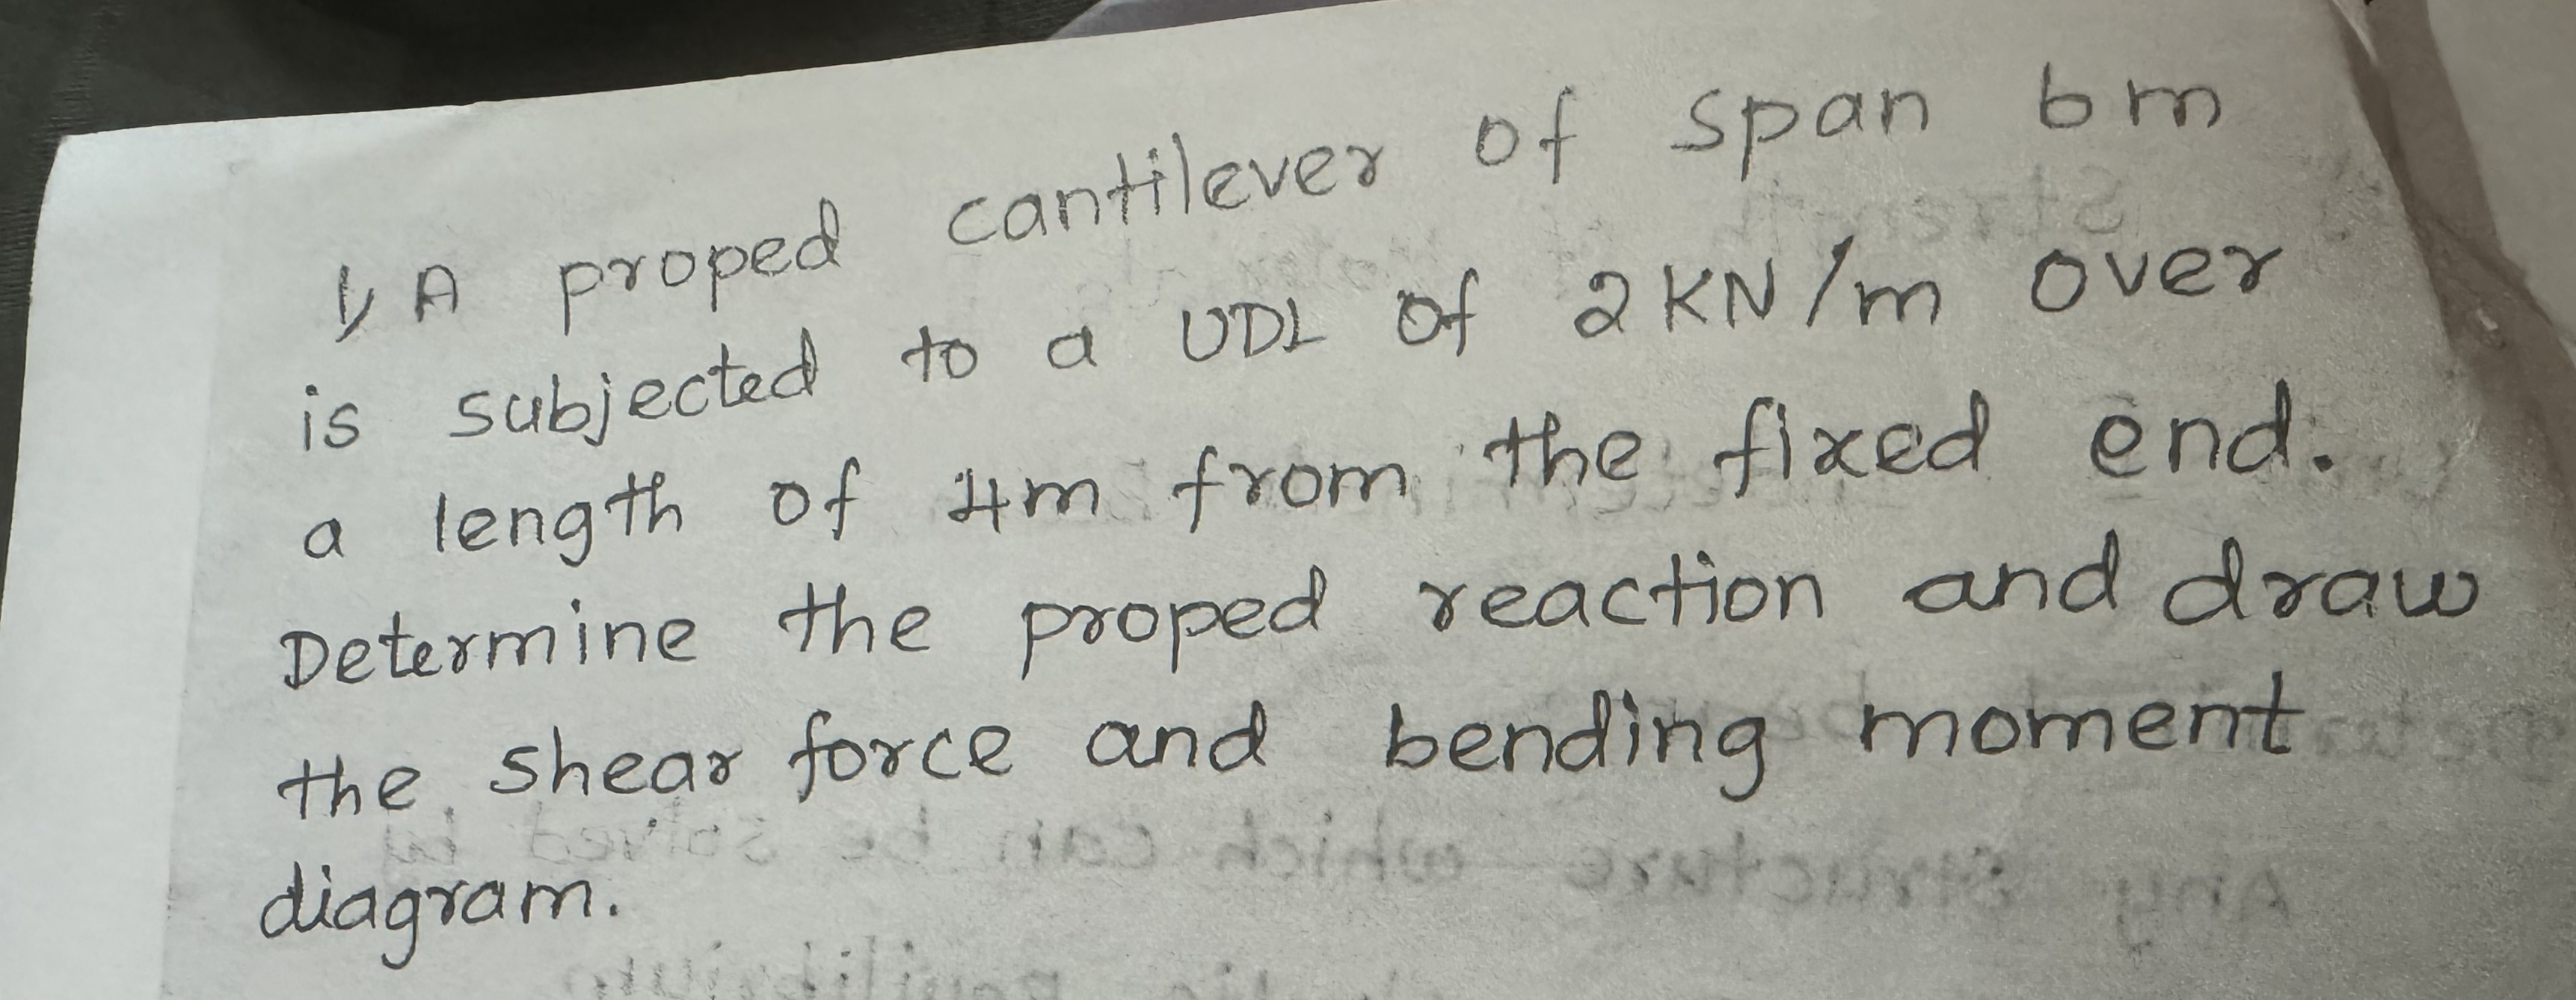 1) A proped cantilever of span 6m
is subjected to a UDL of 2KN/m over
a length of 4m from the fixed end.
Determine the proped reaction and draw
the shear force and bending moment
diagram.